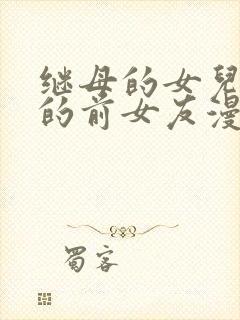 继母的女儿
的前女友漫
蜀客